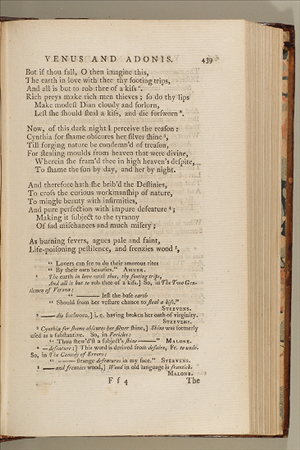 VENUS AND ADONIS. 439
But if thou fall, O then imagine this,
The earth in love with thee thy footing trips,
And all is but to rob thee of a kiſs ².
Rich preys make rich men thieves; ſo do thy lips
Make modeſt Dian cloudy and forlorn,
Leſt ſhe ſhould ſteal a kiſs, and die forſworn ³.
Now, of this dark night I perceive the reaſon:
Cynthia for ſhame obſcures her ſilver ſhine ⁴,
Till forging nature be condemn'd of treaſon,
For ſtealing moulds from heaven that were divine,
Wherein ſhe fram'd thee in high heaven's deſpite,
To ſhame the ſun by day, and her by night.
And therefore hath ſhe brib'd the Deſtinies,
To croſs the curious workmanſhip of nature,
To mingle beauty with infirmities,
And pure perfection with impure defeature ⁵;
Making it ſubject to the tyranny
Of ſad miſchances and much miſery;
As burning fevers, agues pale and faint,
Life-poiſoning peſtilence, and frenzies wood ⁶,
“ Lovers can ſee to do their amorous rites
“ By their own beauties.” MALONE.
² The earth in love with thee thy footing trips,
And all is but to rob thee of a kiſs.] So, in The Two Gentlemen
of Verona:
“ —— leſt the baſe earth
“ Should from her veſture chance to ſteal a kiſs.”
STEEVENS.
³ — die forſworn.] i. e. having broken her oath of virginity.
STEEVENS.
⁴ Cynthia for ſhame obſcures her ſilver ſhine,] Shine was formerly
uſed as a ſubſtantive. So, in Pericles:
“ Thou ſhew'dſt a ſubject's ſhine ——.” MALONE.
⁵ — defeature;] This word is derived from defaire, Fr. to undo.
So, in The Comedy of Errors:
“ —— ſtrange defeatures in my face.” STEEVENS.
⁶ — and frenzies wood,] Wood in old language is frantick.
MALONE.
F f 4 The